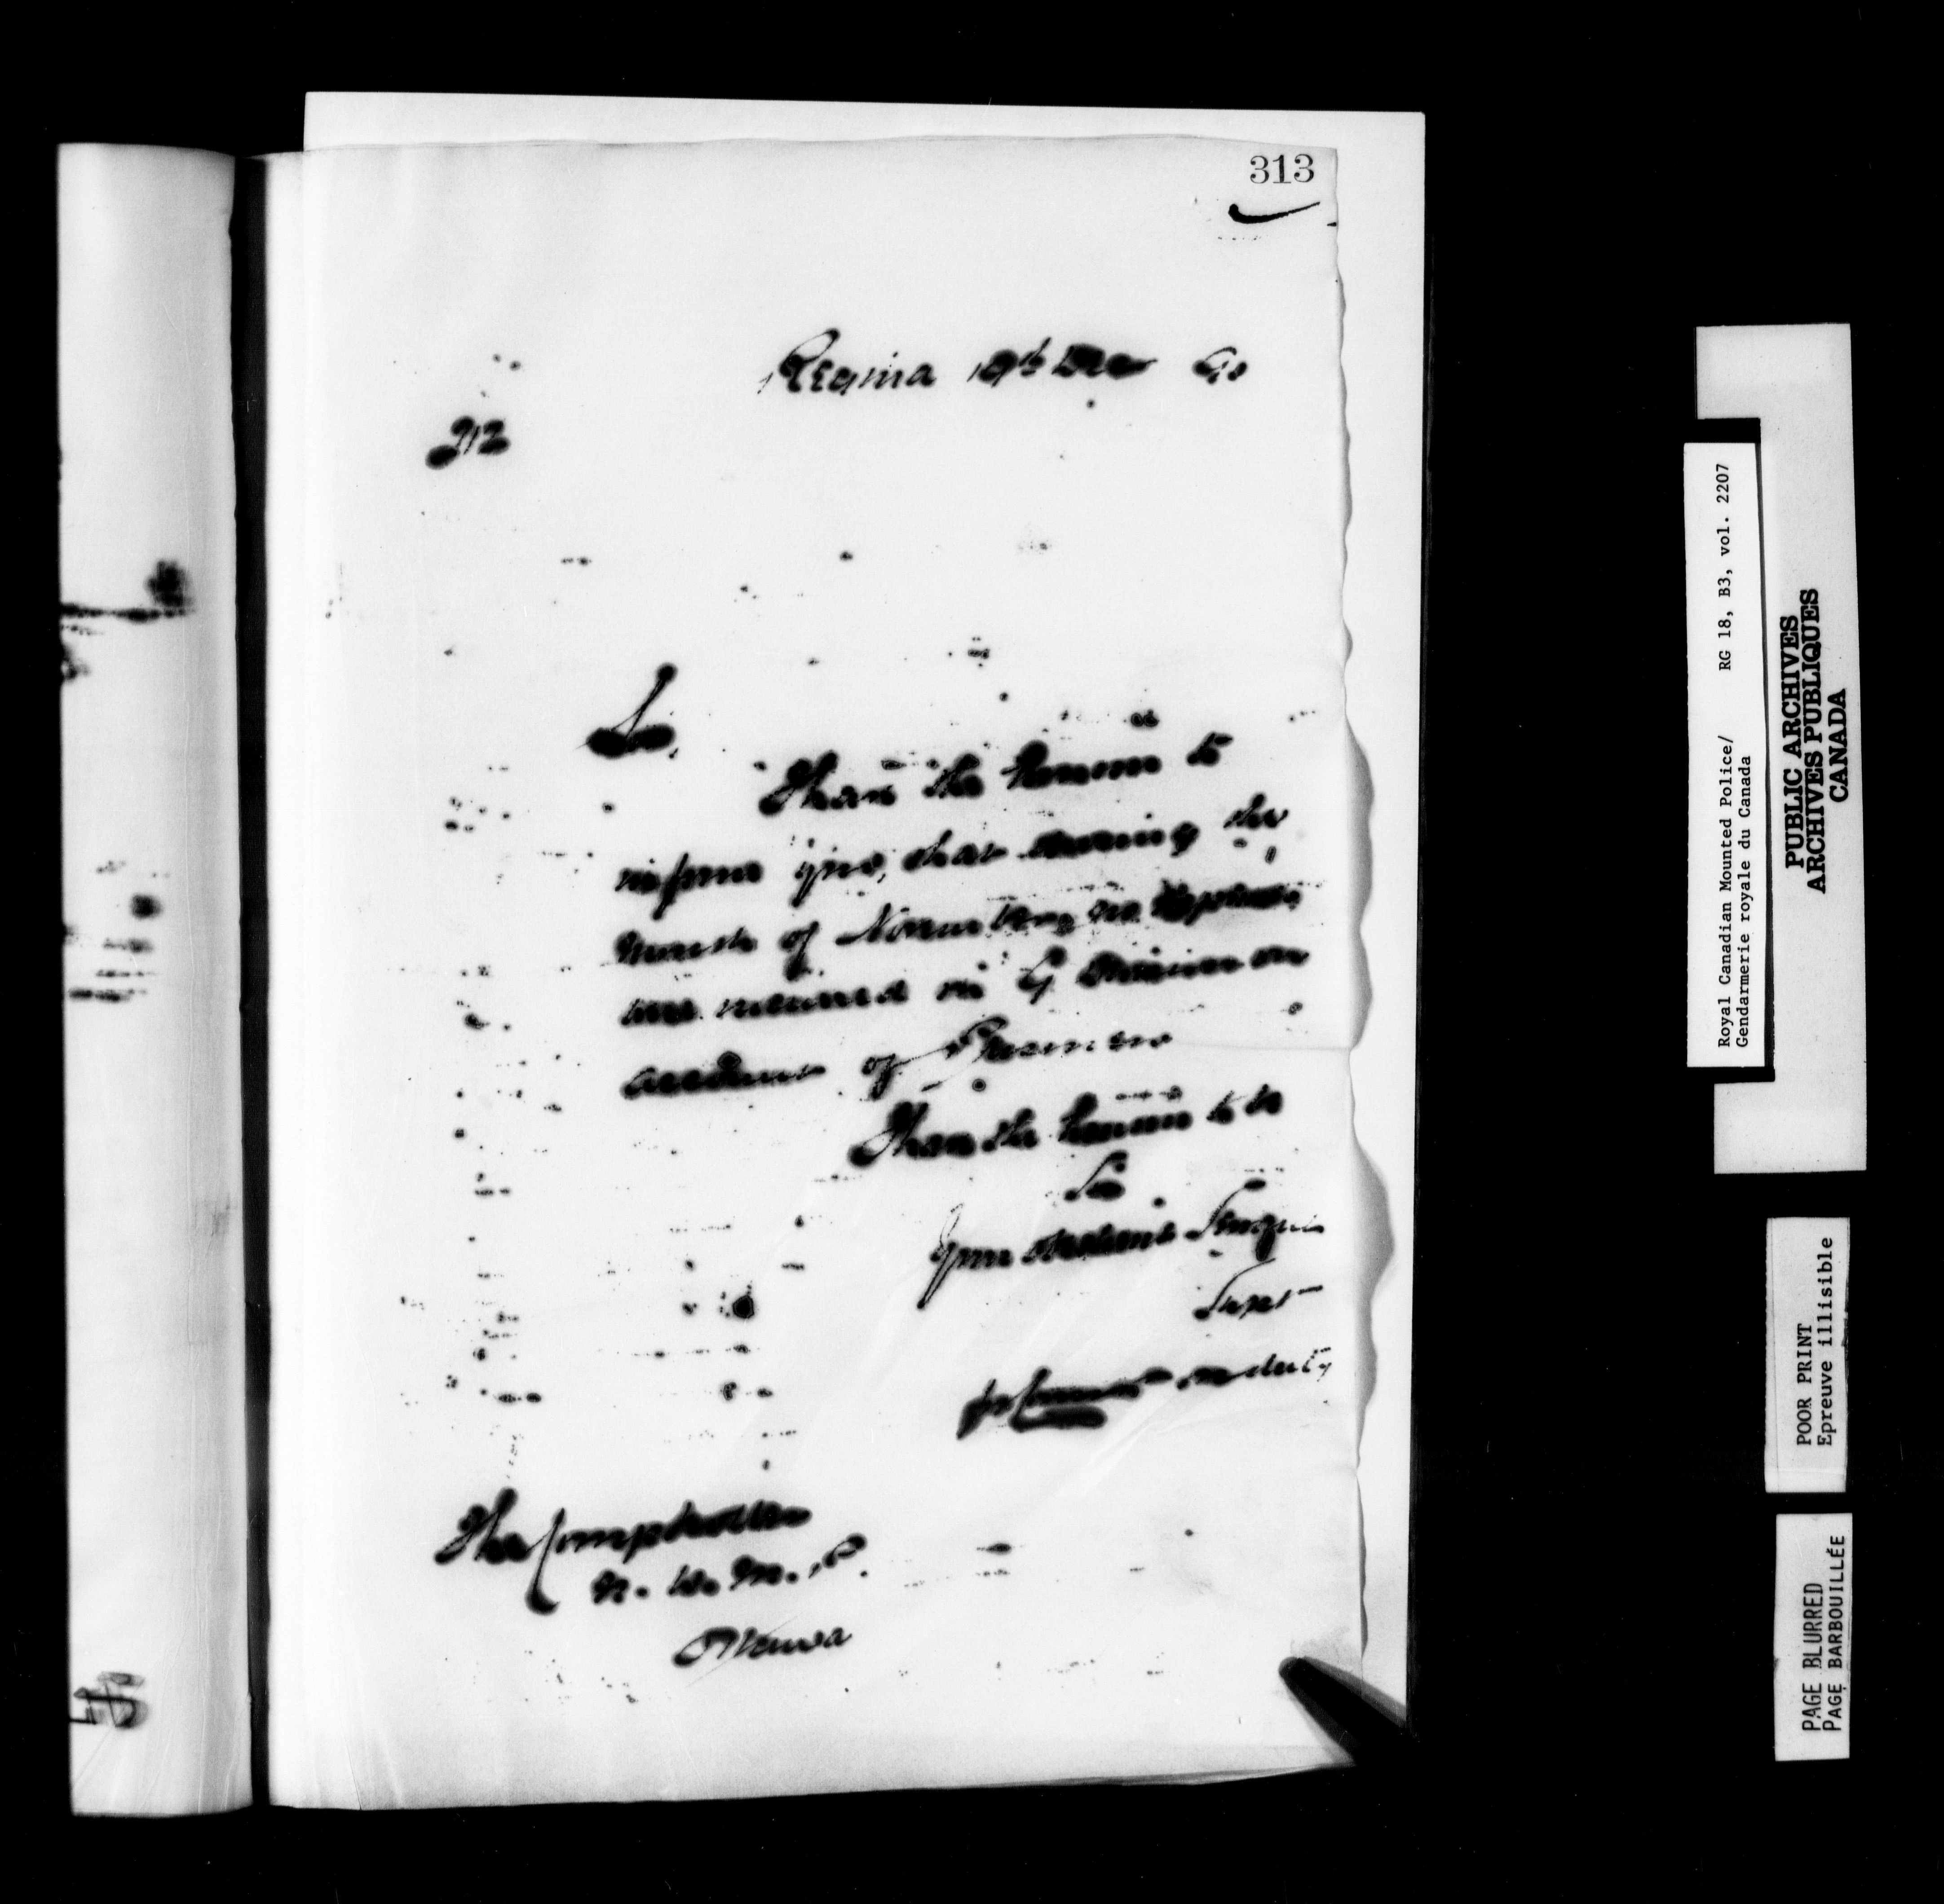 313
Regina 19th Dec 90
212
Sir,
I have the honour to
inform you, that during the
month of November, no expenses
were incurred in G Division on
account of Prisoners
I have the honour to be
Sir
Your obedient Servant
Supt
for Commr on duty
The Comptroller
N. W. M. P.
Ottawa
Royal Canadian Mounted Police/ RG 18, B3, vol. 2207
Gendarmerie royale du Canada
PUBLIC ARCHIVES
ARCHIVES PUBLIQUES
CANADA
POOR PRINT
Epreuve illisible
PAGE BLURRED
PAGE BARBOUILLÉE